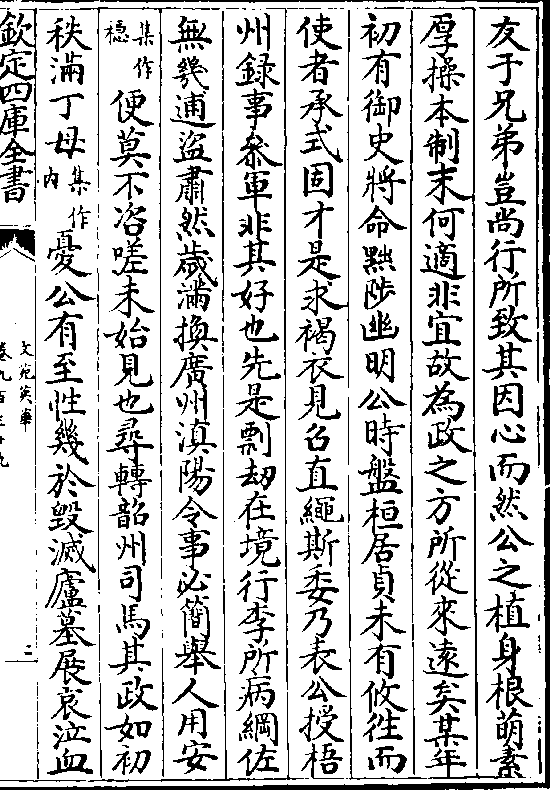 友于兄弟豈尚行所致其因心而然公之植身根萌素
厚操本制末何適非宜故為政之方所從來遠矣某年
初有御史將命黜陟幽明公時盤桓居貞未有攸往而
使者承式固才是求褐衣見召直繩斯委乃表公授梧
州録事叅軍非其好也先是剽刼在境行李所病綱佐
無幾逋盜肅然歲滿換廣州滇陽令事必簡舉人用安
集作
穏
便莫不咨嗟未始見也尋轉韶州司馬其政如初
秩滿丁母
集作
内
憂公有至性幾於毀滅廬墓展哀泣血
欽定四庫全書
文苑英華
卷九百三十九
二